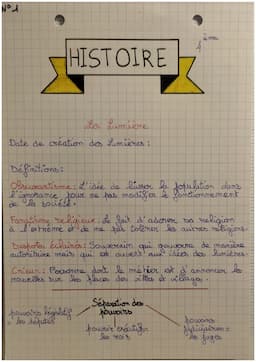 N°1
4ème
HISTOIRE
Les Lumière
Date de création des Lumières :
Définitions :
Obscurantisme : L'idée de laisser la population dans
l'ignorance pour ne pas modifier le fonctionnement
de la société.
Fanatisme religieux : Le fait d'adorer sa religion
à l'extrême et de ne pas tolérer les autres religions.
Despotes éclairés : Souverain qui gouverne de manière
autoritaire mais qui est ouvert aux idées des lumières.
Crieur : Personne dont le métier est d'annoncer les
nouvelles sur les places des villes et villages.
Séparation des
pouvoirs
pouvoirs législatif
= les députés
pouvoir exécutif =
les rois
pouvoirs
judiciaires =
les juges